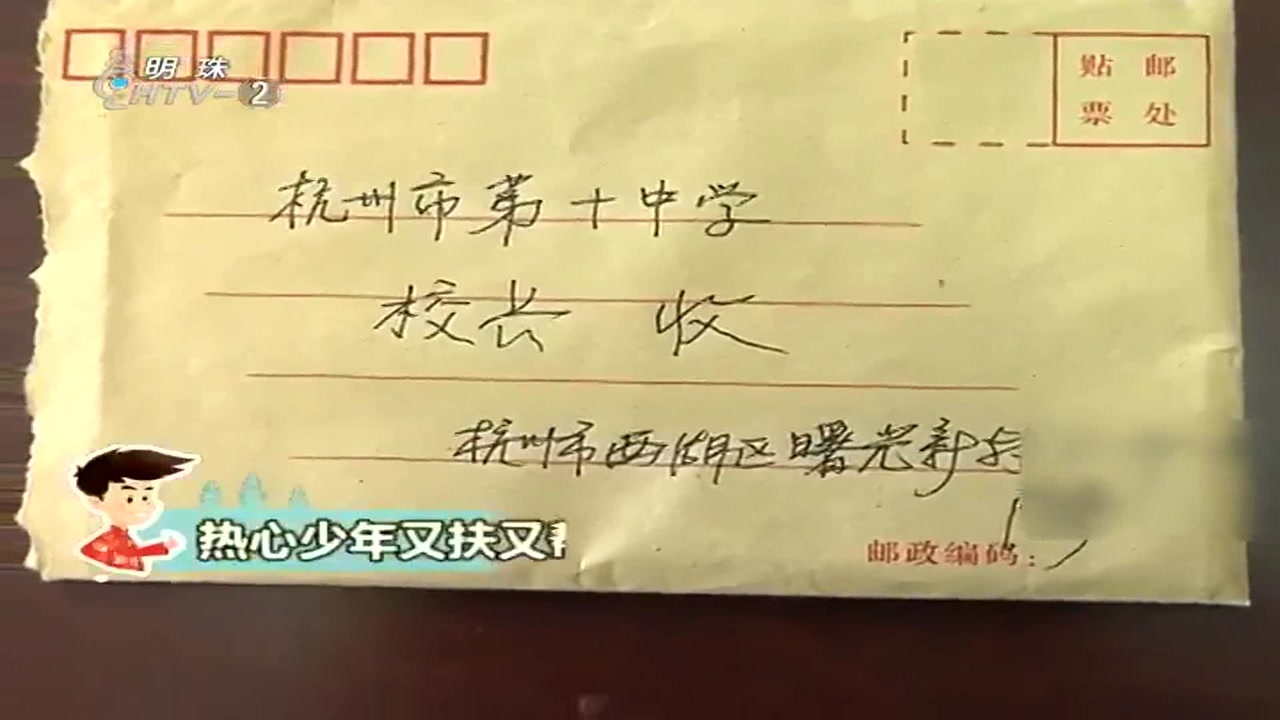 明珠
HTV-2
贴邮
票处
杭州市第十中学
校长 收
杭州市西湖区曙光新
热心少年又扶又
邮政编码：